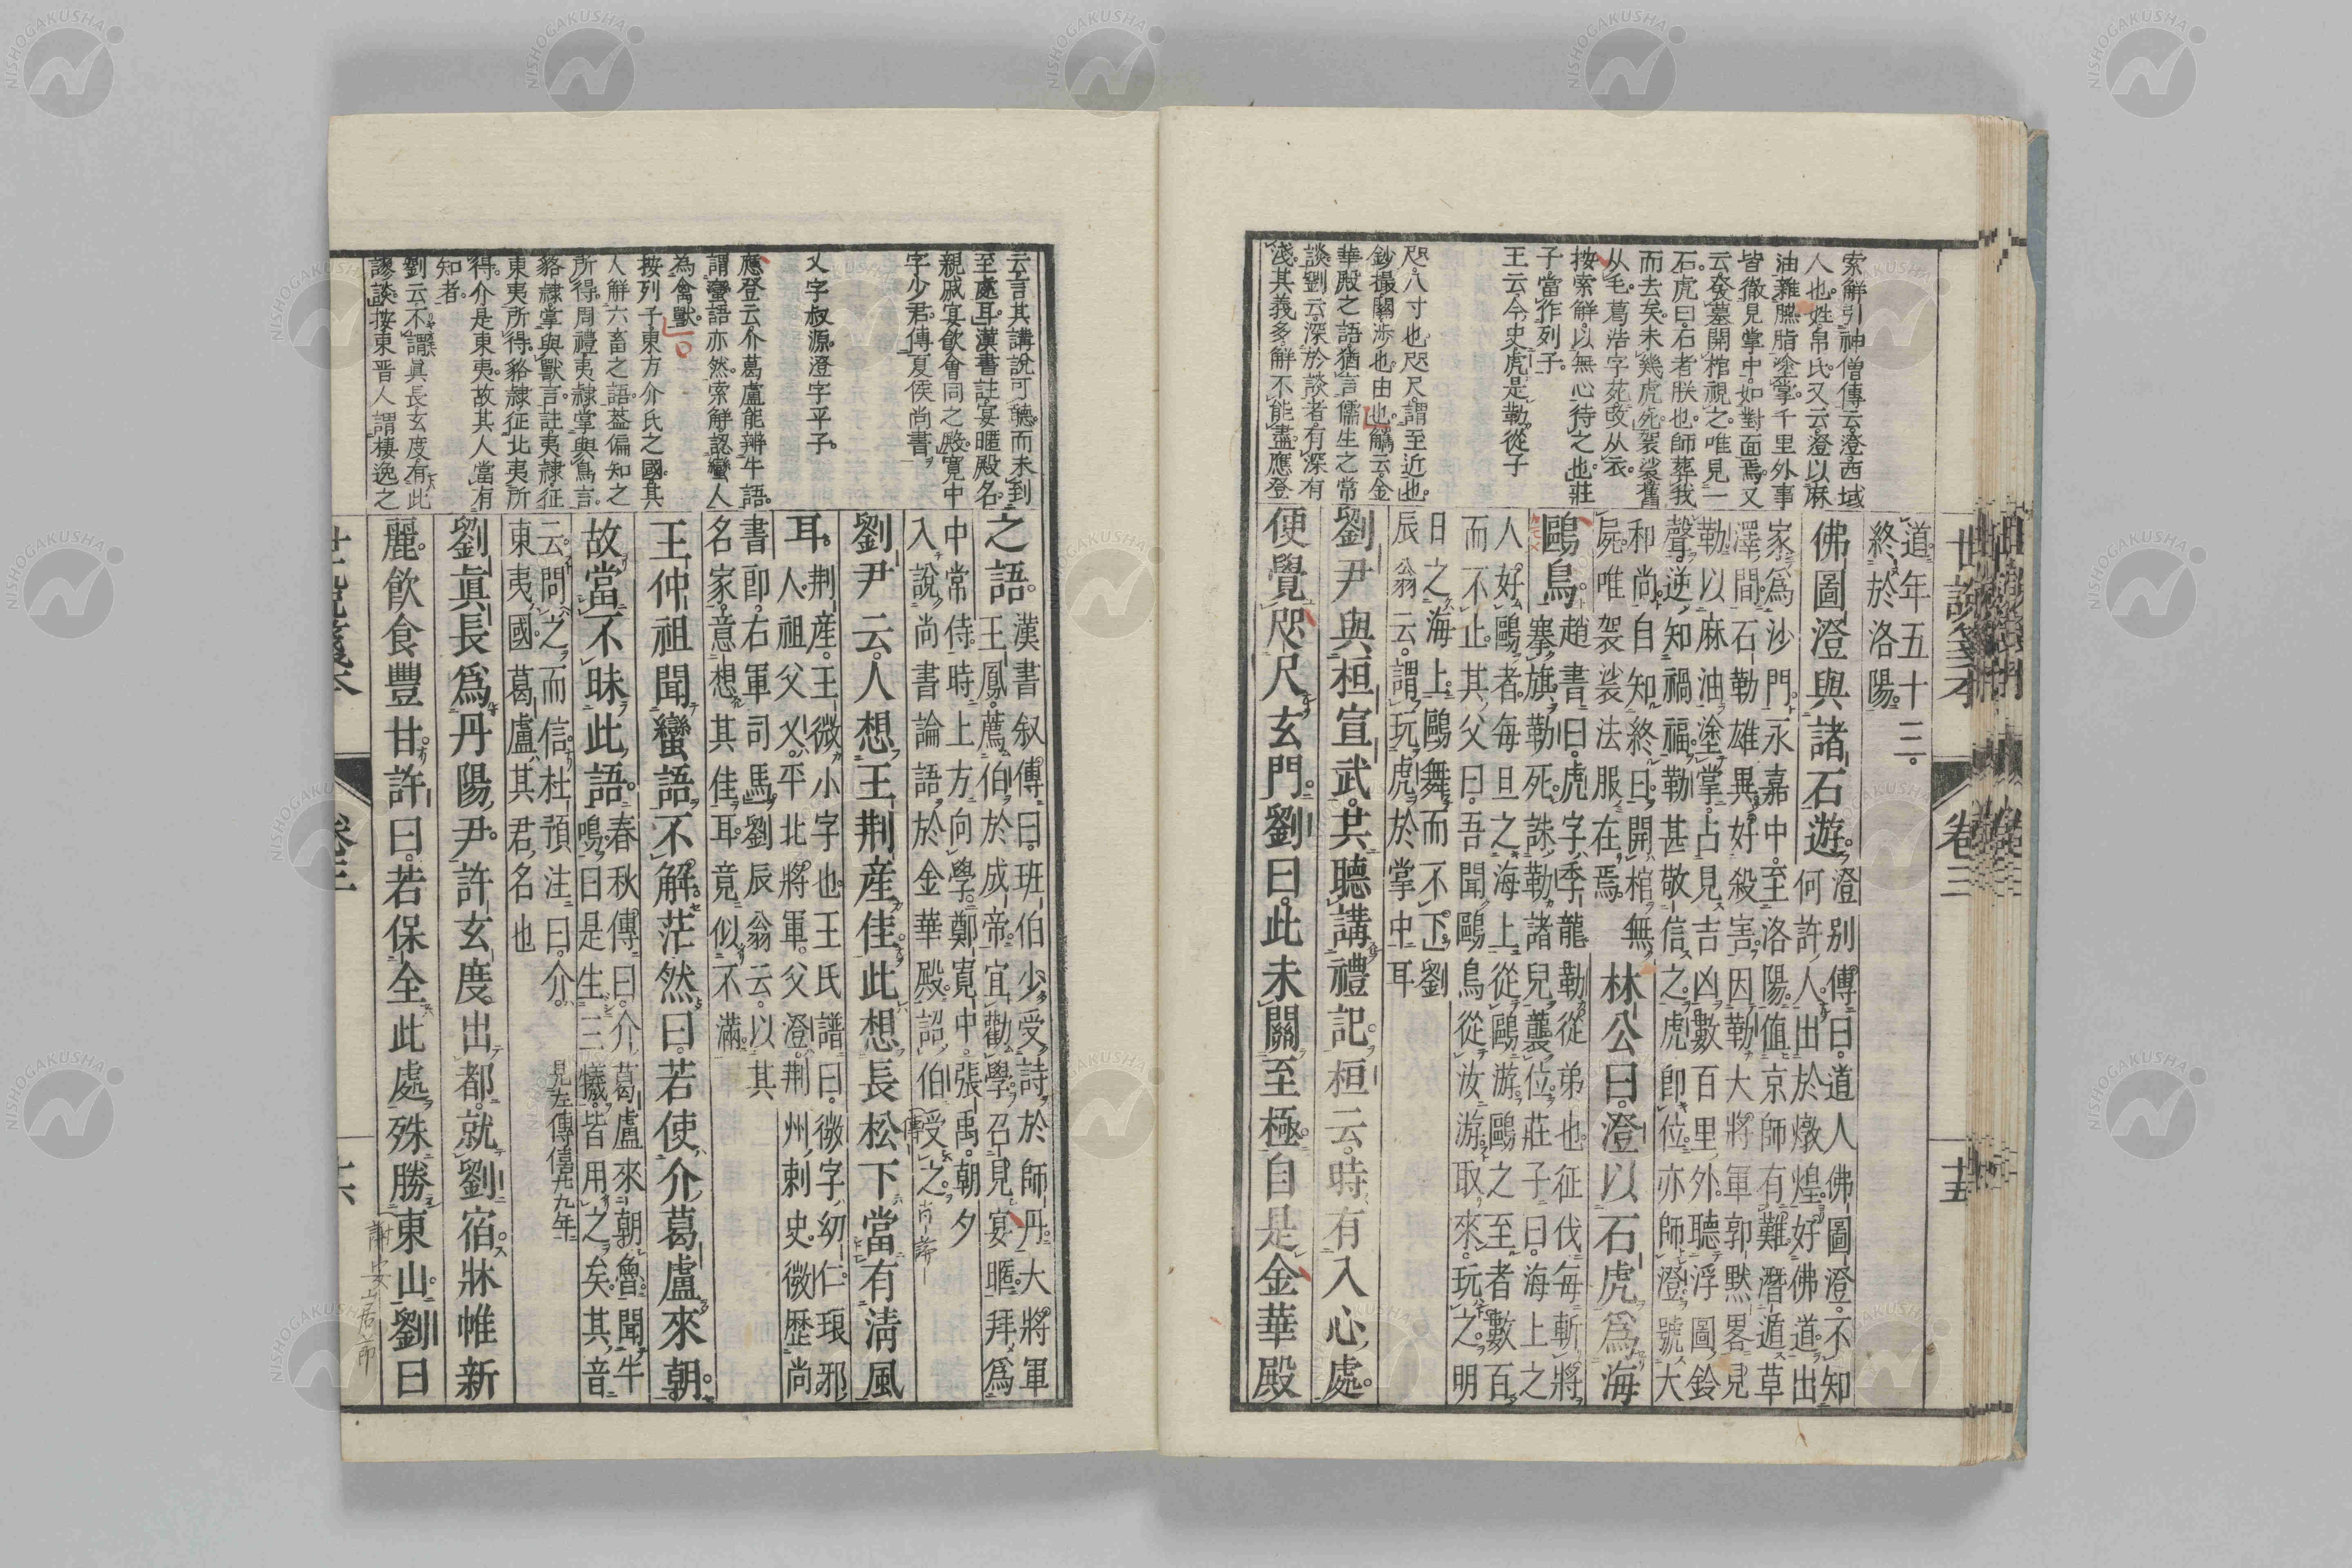 世說箋本 卷三 十五
索解引神僧傳云。澄西域
人也。姓帛氏。又云。澄以麻
油雜臙脂塗掌。千里外事
皆徹見掌中。如對面焉。又
云。發墓開棺視之。唯見一
石。虎曰。石者朕也。師葬我
而去矣。未幾虎死。袈裟舊
从毛。葛浩字苑改从衣。
按索解。以無心待之也。莊
子當作列子。
王云。今史虎是勒從子
咫八寸也。咫尺謂至近也。
鈔撮關渉也。由也。觿云。金
華殿之語。猶言儒生之常
談。劉云。深於談者。有深有
淺。其義多解不能盡。應登
道。年五十三。
終於洛陽。
佛圖澄與諸石遊。澄別傳曰。道人佛圖澄。不知
何許人。出於燉煌。好佛道。出
家爲沙門。永嘉中。至洛陽。値京師有難。潛遁草
澤間。石勒雄異好殺害。因勒大將軍郭黙畧見
勒。以麻油塗掌。占見吉凶數百里外。聽浮圖鈴
聲。逆知禍福。勒甚敬信之。虎即位。亦師澄。號大
和尚。自知終日。開棺無
屍。唯袈裟法服在焉。
林公曰。澄以石虎爲海
鷗鳥。趙書曰。虎字季龍。勒從弟也。征伐每斬將
搴旗。勒死。誅勒諸兒襲位。莊子曰。海上之
人好鷗者。毎旦之海上。從鷗游。鷗之至者數百
而不止。其父曰。吾聞鷗鳥從汝游。取來。玩之。明
日之海上。鷗舞而不下。劉
辰翁云。謂玩虎於掌中耳
劉尹與桓宣武。共聽講禮記。桓云。時有入心處。
便覺咫尺玄門。劉曰。此未關至極。自是金華殿
云。言其講說可聽。而未到
至處耳。漢書註。宴暱殿名。
親戚宴飮會同之殿。寛中
字少君。傳夏侯尚書。
乂字叔源。澄字平子。
應登云。介葛盧能辨牛語。
謂蠻語亦然。索解認蠻人
為禽獸。
按列子。東方介氏之國。其
人解六畜之語。蓋偏知之
所得。周禮夷隷掌與鳥言。
貉隷掌與獸言。註夷隷征
東夷所得。貉隷征北夷所
得。介是東夷。故其人當有
知者。
劉云。不謂眞長玄度有此
謬談。按東晋人謂棲逸之
之語。漢書叙傳曰。班伯少受詩於師丹。大將軍
王鳳薦伯於成帝。宜勸學。召見宴暱。拜爲
中常侍。時上方向學。鄭寬中。張禹。朝夕
入說尚書論語於金華殿。詔伯受之。
劉尹云。人想王荆産佳。此想長松下。當有清風
耳。荆産。王微小字也。王氏譜曰。微字幼仁。琅邪
人。祖父乂。平北將軍。父澄。荆州刺史。微歴尚
書郎。右軍司馬。劉辰翁云。以其
名家。意想其佳耳。竟似不滿。
王仲祖聞蠻語不解。茫然曰。若使介葛盧來朝。
故當不昧此語。春秋傳曰。介葛盧來朝魯。聞牛
鳴。曰是生三犧。皆用之矣。其音
云。問之而信。杜預注曰。介。
東夷國。葛盧其君名也
見左傳僖廿九年
劉眞長爲丹陽尹。許玄度出都。就劉宿。牀帷新
麗。飮食豐甘。許曰。若保全此處。殊勝東山。劉曰
謝安山居
世說箋本 卷三 十六